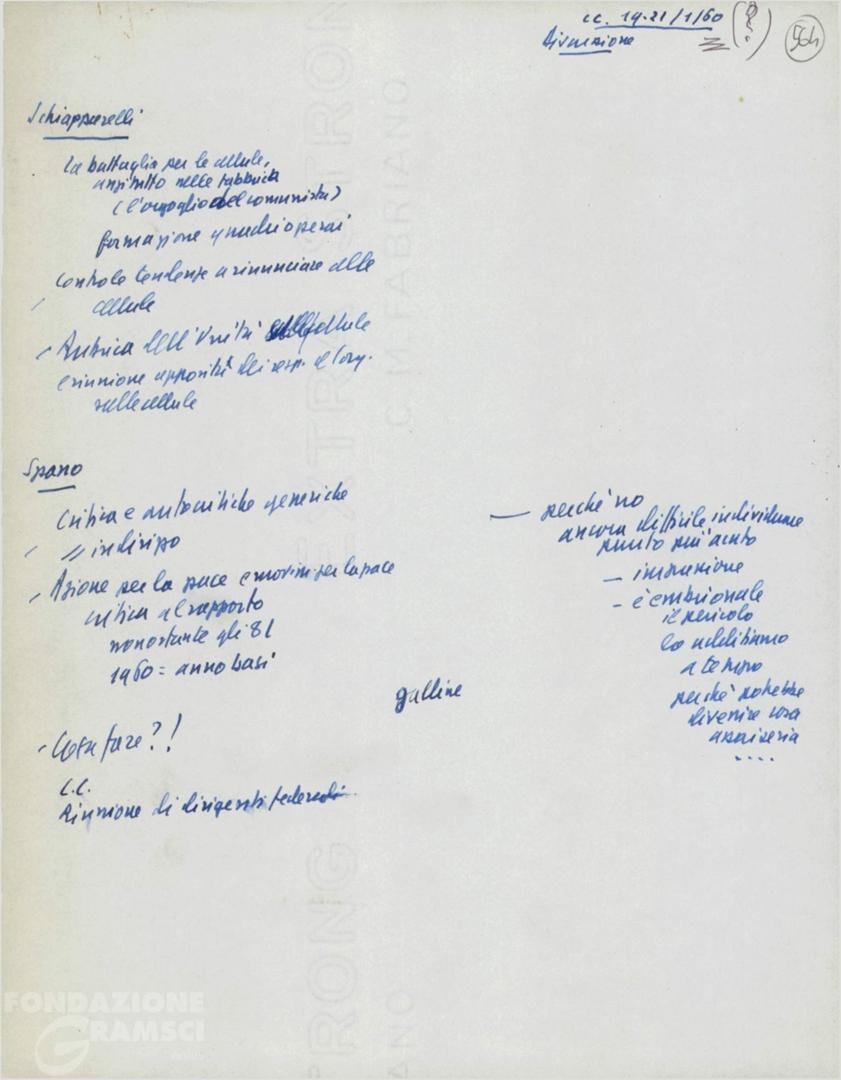 C.C. 19-21/1/60 (?)
Discussione
564
Schiapparelli
La battaglia per le cellule,
anzitutto nelle fabbriche
(l'orgoglio del comunista)
formazione quadri operai
Contro le tendenze a rinunciare alle
cellule
Rubrica dell'Unità sulle cellule
e riunione apposita dei resp. d'org.
sulle cellule
Spano
Critica e autocritiche generiche
// indirizzo
Azione per la pace e movim. per la pace
critica al rapporto
nonostante gli 81
1960 = anno basi
galline
Cosa fare?!
C.C.
Riunione di dirigenti federali
— perché no
ancora difficile individuare
punto più acuto
— impressione
— è embrionale
il pericolo
lo additiamo
a tempo
perché potrebbe
divenire cosa
assai seria
....
EXTRA STRONG
C. M. FABRIANO
FONDAZIONE
GRAMSCI